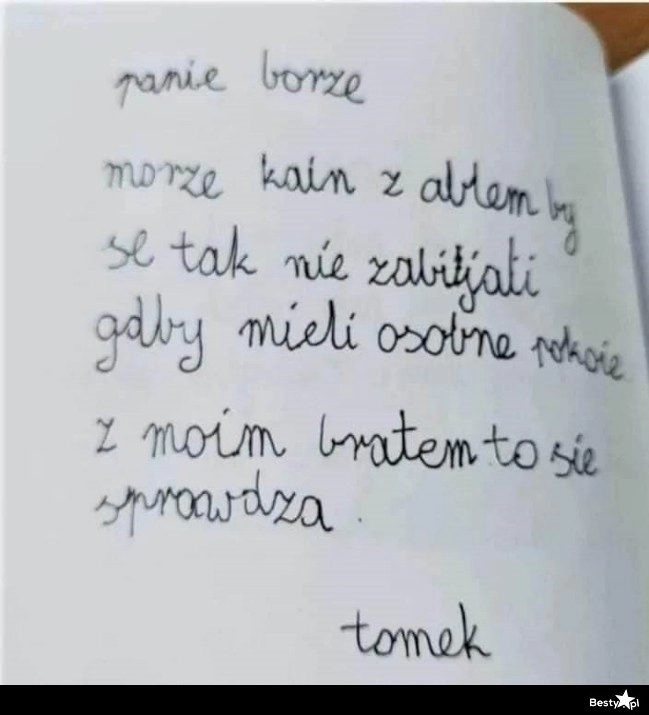 panie borze
morze kain z ablem by
se tak nie zabijali
gdby mieli osobne pokoie
z moim bratem to sie
sprawdza.
tomek
Besty.pl